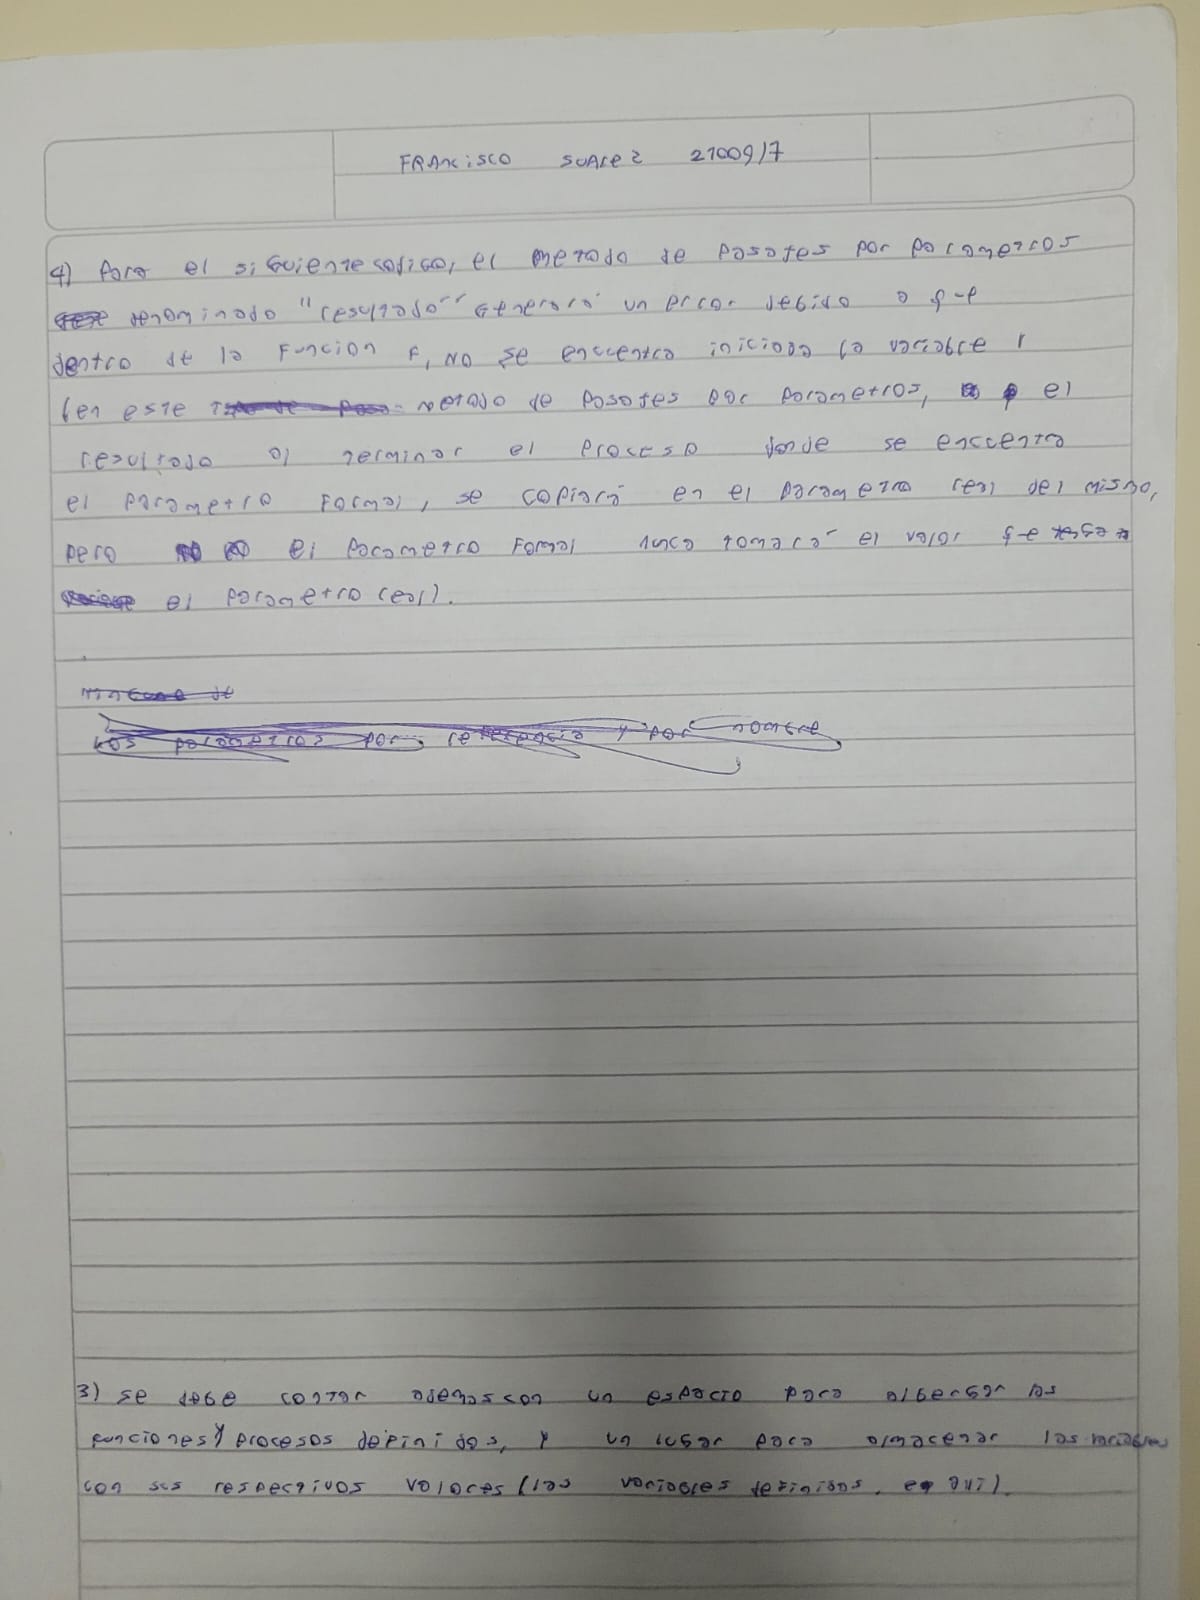 FRANCISCO SUAREZ 21009/7
4) Para el siguiente codigo, el metodo de pasajes por parametros
denominado "resultado" generará un error debido a que
dentro de la funcion F, NO se encuentra iniciada la variable
(en este metodo de pasajes por parametros, el
resultado al terminar el proceso donde se encuentra
el parametro formal, se copiará en el parametro real del mismo,
pero el parametro formal nunca tomará el valor que tenga
el parametro real).
Los parametros por referencia y por nombre
3) se debe contar ademas con un espacio para albergar las
funciones y procesos definidos, y un lugar para almacenar las variables
con sus respectivos valores (las variables definidas,